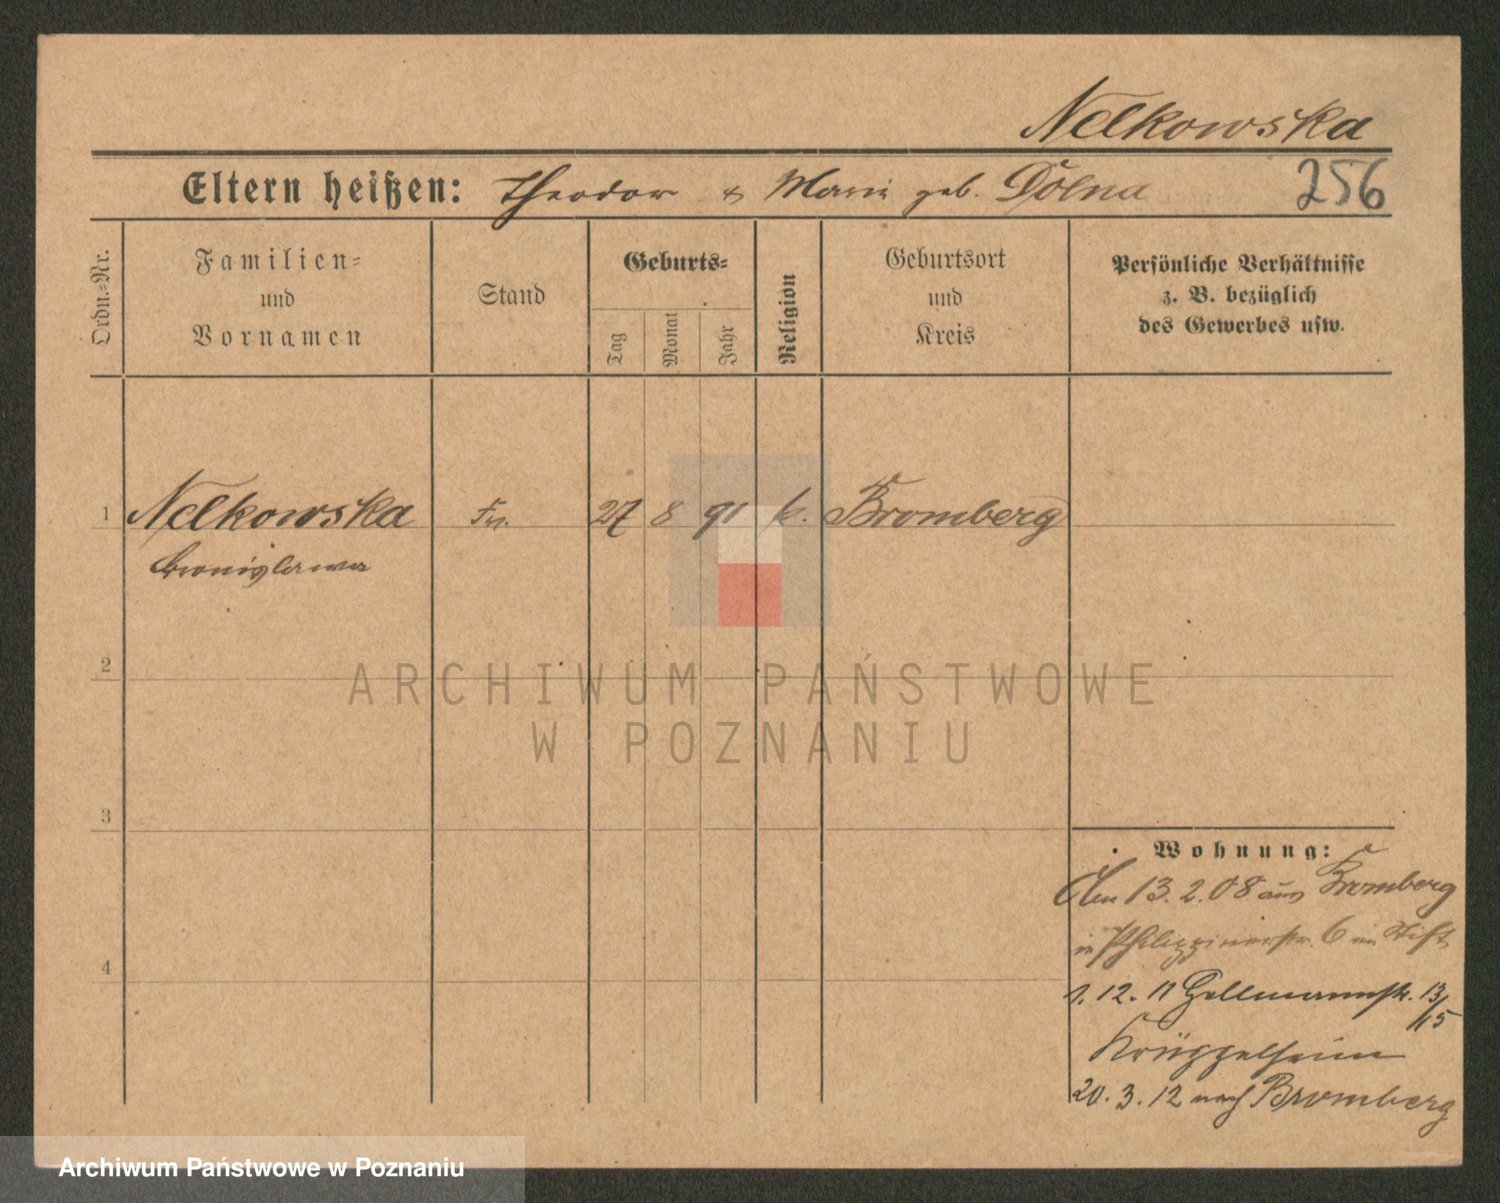 Nelkowska
Eltern heißen: Theodor & Marie geb. Dolna 256
Ordn.-Nr.
Familien-
und
Vornamen
Stand
Geburts-
Tag
Monat
Jahr
Religion
Geburtsort
und
Kreis
Persönliche Verhältnisse
z. B. bezüglich
des Gewerbes usw.
1 Nelkowska 27 8 91 k. Bromberg
Bronislawa
2
ARCHIWUM PAŃSTWOWE
W POZNANIU
3
Wohnung:
Am 13.2.08 aus Bromberg
in Philippinerstr. 6 im Stift
1. 12. 11 13/15
Krüppelheim
20. 3. 12 nach Bromberg
4
Archiwum Państwowe w Poznaniu